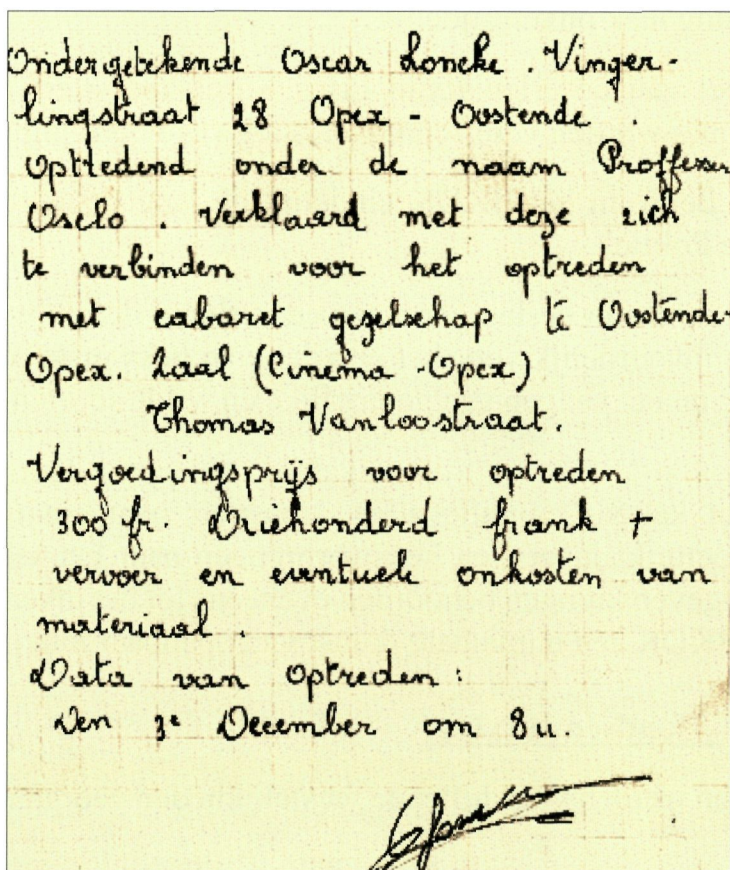 Ondergetekende Oscar Loncke . Vinger-
lingstraat 28 Opex - Oostende .
Optredend onder de naam Proffesser
Oselo . Verklaard met deze zich
te verbinden voor het optreden
met cabaret gezelschap te Oostende-
Opex. Zaal (Cinema - Opex)
Thomas Vanloostraat.
Vergoedingsprijs voor optreden
300 fr. Driehonderd frank +
vervoer en eventuele onkosten van
materiaal .
Data van optreden :
Den 3e December om 8u.